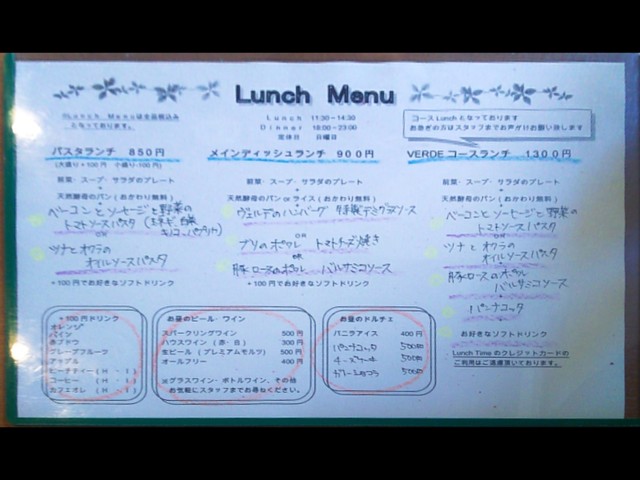 Lunch Menu
※Lunch Menuは全品税込み
となっております。
Lunch 11:30~14:30
Dinner 18:00~23:00
定休日 日曜日
コースLunchとなっております
お急ぎの方はスタッフまでお声がけお願い致します
パスタランチ 850円
(大盛り+100円 小盛り-100円)
前菜・スープ・サラダのプレート
+
天然酵母のパン(おかわり無料)
ベーコンとソーセージと野菜の
トマトソースパスタ
OR
ツナとオクラの
オイルソースパスタ
+100円でお好きなソフトドリンク
メインディッシュランチ 900円
前菜・スープ・サラダのプレート
+
天然酵母のパンorライス(おかわり無料)
ヴェルデのハンバーグ 特製デミグラソース
OR
ブリのポワレ トマトチーズ焼き
OR
豚ロースのポワレ バルサミコソース
+100円でお好きなソフトドリンク
VERDEコースランチ 1300円
前菜・スープ・サラダのプレート
+
天然酵母のパン(おかわり無料)
ベーコンとソーセージと野菜の
トマトソースパスタ
OR
ツナとオクラの
オイルソースパスタ
+
豚ロースのポワレ
バルサミコソース
+
パンナコッタ
+
お好きなソフトドリンク
Lunch Timeのクレジットカードの
ご利用はご遠慮頂いております。
+100円ドリンク
オレンジ
パイン
赤ブドウ
グレープフルーツ
アップル
ピーチティー(H・I)
コーヒー (H・I)
カフェオレ(H・I)
お昼のビール・ワイン
スパークリングワイン 500円
ハウスワイン(赤・白) 300円
生ビール(プレミアムモルツ) 500円
オールフリー 400円
※グラスワイン・ボトルワイン、その他
お気軽にスタッフまでお尋ねください。
お昼のドルチェ
バニラアイス 400円
パンナコッタ 500円
チーズケーキ 500円
500円